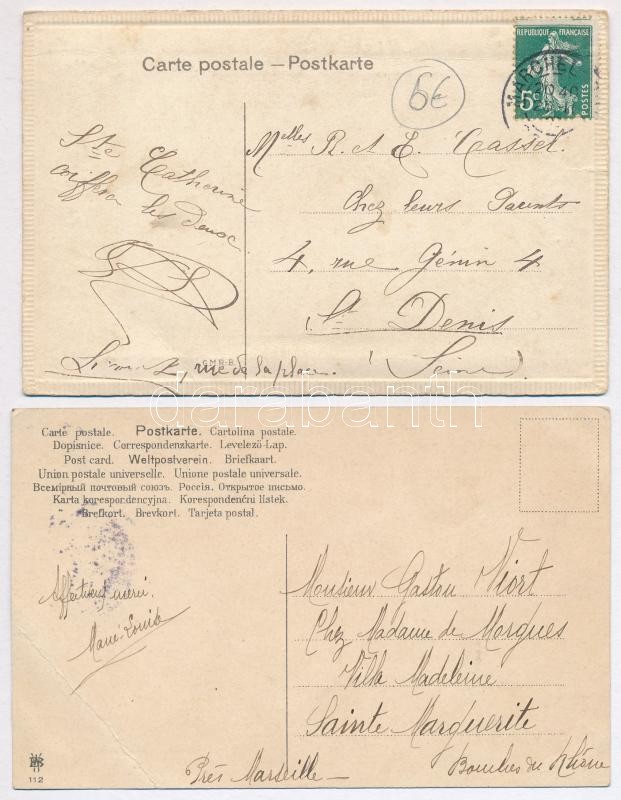 Carte postale – Postkarte
6€
REPUBLIQUE FRANÇAISE
5c
POSTES
Ste Catherine
coiffera les deux
Melles R. et E. Casset
Chez leurs Parents
4, rue Génin 4
St Denis
Seine
C.M.R.B.
rue de la place.
darabanth
Carte postale. Postkarte. Cartolina postale.
Dopisnice. Correspondenzkarte. Levelező-Lap.
Post card. Weltpostverein. Briefkaart.
Union postale universelle. Unione postale universale.
Всемірный почтовый союзъ. Россія. Открытое письмо.
Karta korespondencyjna. Korespondenční lístek.
Brefkort. Brevkort. Tarjeta postal.
Marie-Louise
Monsieur Gaston Viort
Chez Madame de Morgues
Villa Madeleine
Sainte Marguerite
Près Marseille –
Bouches du Rhône
112